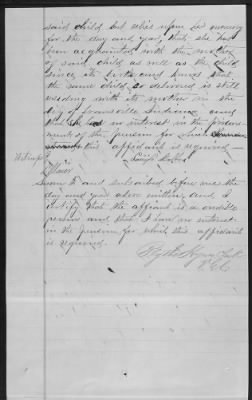 said child but relies upon her memory
for the day and year, that she has
been acquainted with the mother
of said child as well as the child
since its birth and knows that
the same child so delivered is still
residing with its mother in the
city of Indiana and
that she has no interest in the procure-
ment of the pension for which
this affidavit is required —
Witness
Sworn to and subscribed before me the
day and year above written and I
certify that the affiant is a credible
person and that I have no interest
in the pension for which this affidavit
is required.
Clerk